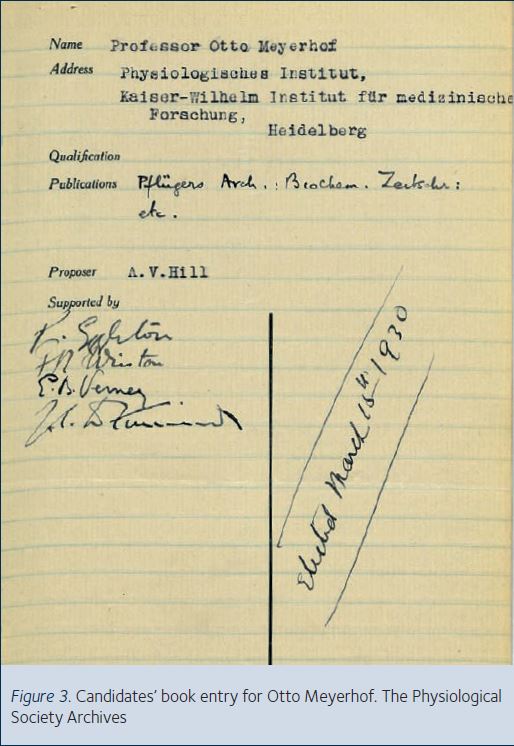 Name Professor Otto Meyerhof
Address Physiologisches Institut,
Kaiser-Wilhelm Institut für medizinische
Forschung,
Heidelberg
Qualification
Publications Pflügers Arch. : Biochem. Zeitschr :
etc.
Proposer A.V.Hill
Supported by
P. Eggleton
Winton
E.B. Verney
Elected March 15th 1930
Figure 3. Candidates’ book entry for Otto Meyerhof. The Physiological
Society Archives